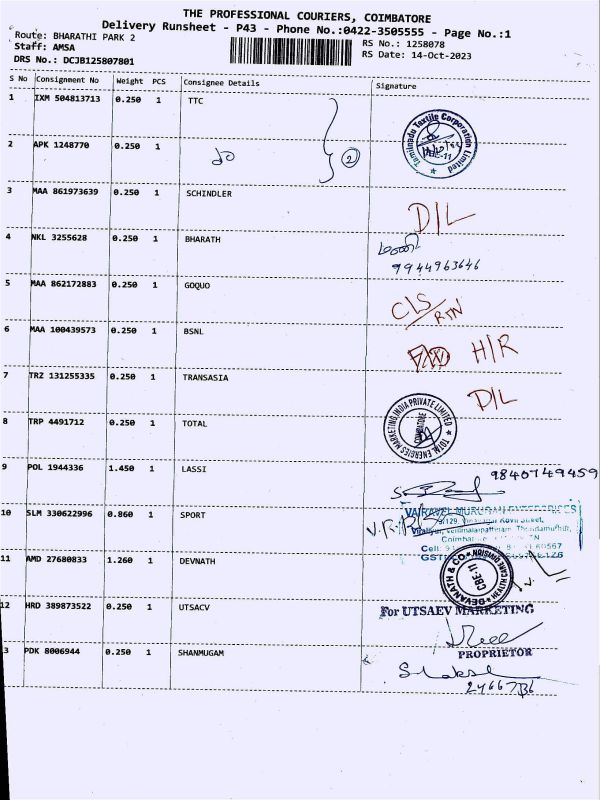 THE PROFESSIONAL COURIERS, COIMBATORE
Delivery Runsheet - P43 - Phone No.:0422-3505555 - Page No.:1
Route: BHARATHI PARK 2
RS No.: 1258078
Staff: AMSA
RS Date: 14-Oct-2023
DRS No.: DCJB125807801
S No Consignment No Weight PCS Consignee Details Signature
1 IXM 504813713 0.250 1 TTC
Tamilnadu Textile Corporation Limited
2 APK 1248770 0.250 1
2
3 MAA 861973639 0.250 1 SCHINDLER
D/L
4 NKL 3255628 0.250 1 BHARATH
மணி
9944963646
5 MAA 862172883 0.250 1 GOQUO
CLS/RTN
6 MAA 100439573 0.250 1 BSNL
H/R
7 TRZ 131255335 0.250 1 TRANSASIA
D/L
8 TRP 4491712 0.250 1 TOTAL
TOTAL ENERGIES MARKETING INDIA PRIVATE LIMITED
COIMBATORE
9 POL 1944336 1.450 1 LASSI
9840749459
10 SLM 330622996 0.860 1 SPORT
VAIRAVEL MURUGAN ENTERPRISES
11 AMD 27680833 1.260 1 DEVNATH
DEVANATH & CO
HEALTH CARE DIVISION
CBE-11
12 HRD 389873522 0.250 1 UTSACV
For UTSAEV MARKETING
PROPRIETOR
3 PDK 8006944 0.250 1 SHANMUGAM